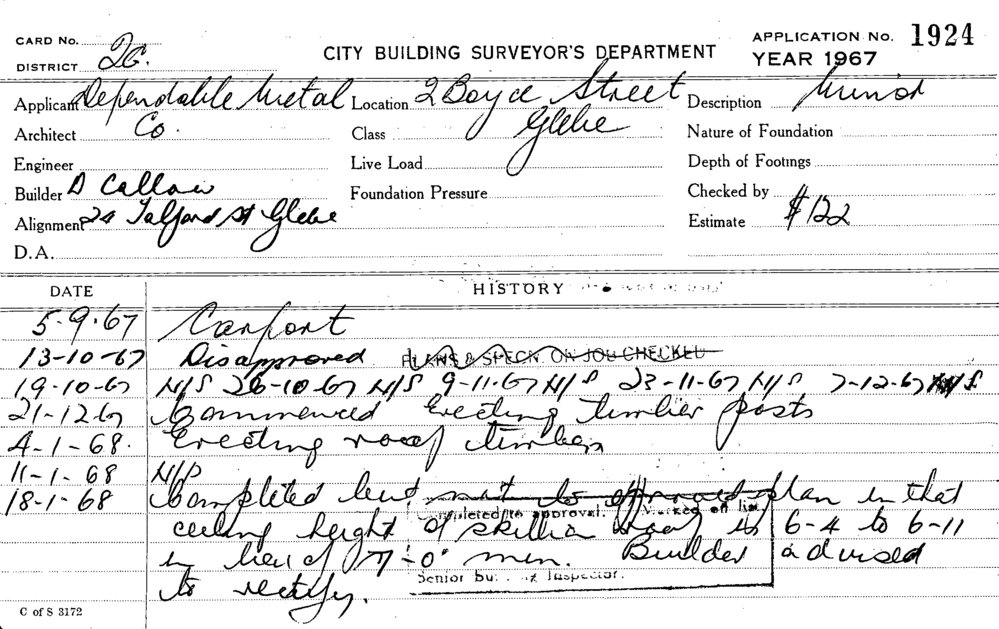 CARD No. 2G. CITY BUILDING SURVEYOR'S DEPARTMENT APPLICATION No. 1924
DISTRICT YEAR 1967
Applicant Dependable Metal Location 2 Boyce Street Description Minor
Architect Co. Class Glebe Nature of Foundation
Engineer Live Load Depth of Footings
Builder D Callaw Foundation Pressure Checked by
Alignment 24 Talford St Glebe Estimate $122
D.A.
DATE HISTORY
5-9-67 Carport
13-10-67 Disapproved PLANS & SPECN. ON JOB CHECKED
19-10-67 N/S 26-10-67 N/S 9-11-67 N/S 23-11-67 N/S 7-12-67 N/S
21-12-67 Commenced Erecting timber posts
4-1-68. Erecting roof timbers
11-1-68 N/P
18-1-68 Completed but not to approved plan in that
Completed to approval. Marked off list
ceiling height of skillion roof is 6-4 to 6-11
in lieu of 7-0 min. Builder advised
Senior Inspector.
to rectify.
C of S 3172